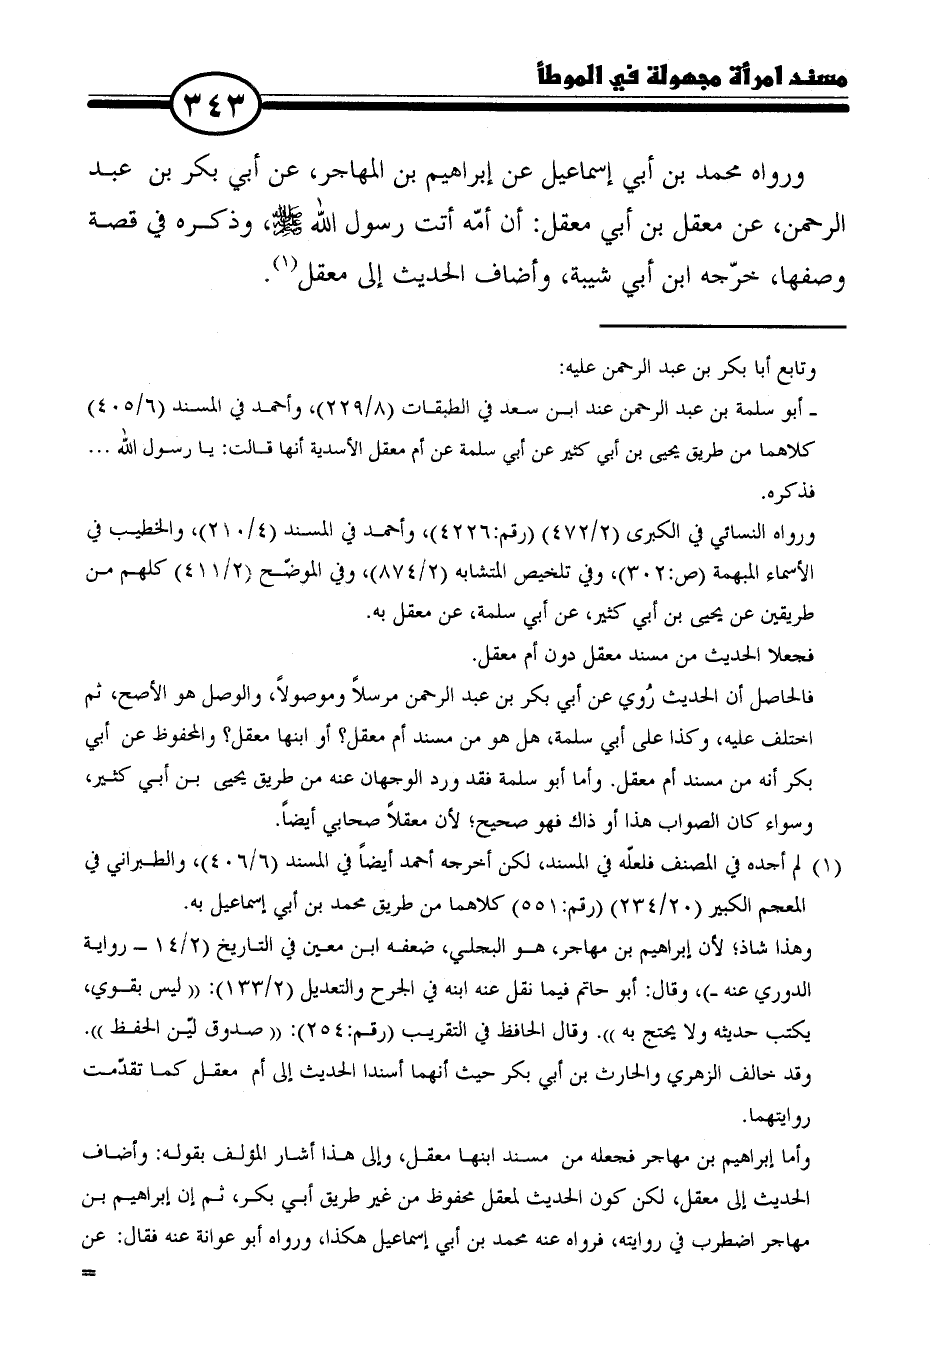 مسند امرأة مجهولة في الموطأ
٣٤٣
ورواه محمد بن أبي إسماعيل عن إبراهيم بن المهاجر، عن أبي بكر بن عبد
الرحمن، عن معقل بن أبي معقل: أن أمّه أتت رسول الله ﷺ، وذكره في قصة
وصفها، خرّجه ابن أبي شيبة، وأضاف الحديث إلى معقل(١).
وتابع أبا بكر بن عبد الرحمن عليه:
ـ أبو سلمة بن عبد الرحمن عند ابن سعد في الطبقات (٢٢٩/٨)، وأحمد في المسند (٤٠٥/٦)
كلاهما من طريق يحيى بن أبي كثير عن أبي سلمة عن أم معقل الأسدية أنها قالت: يا رسول الله ...
فذكره.
ورواه النسائي في الكبرى (٤٧٢/٢) (رقم:٤٢٢٦)، وأحمد في المسند (٢١٠/٤)، والخطيب في
الأسماء المبهمة (ص:٣٠٢)، وفي تلخيص المتشابه (٨٧٤/٢)، وفي الموضّح (٤١١/٢) كلهم من
طريقين عن يحيى بن أبي كثير، عن أبي سلمة، عن معقل به.
فجعلا الحديث من مسند معقل دون أم معقل.
فالحاصل أن الحديث رُوي عن أبي بكر بن عبد الرحمن مرسلاً وموصولاً، والوصل هو الأصح، ثم
اختلف عليه، وكذا على أبي سلمة، هل هو من مسند أم معقل؟ أو ابنها معقل؟ والمحفوظ عن أبي
بكر أنه من مسند أم معقل. وأما أبو سلمة فقد ورد الوجهان عنه من طريق يحيى بن أبي كثير،
وسواء كان الصواب هذا أو ذاك فهو صحيح؛ لأن معقلاً صحابي أيضاً.
(١) لم أجده في المصنف فلعلّه في المسند، لكن أخرجه أحمد أيضاً في المسند (٤٠٦/٦)، والطبراني في
المعجم الكبير (٢٣٤/٢٠) (رقم:٥٥١) كلاهما من طريق محمد بن أبي إسماعيل به.
وهذا شاذ؛ لأن إبراهيم بن مهاجر، هو البجلي، ضعفه ابن معين في التاريخ (١٤/٢ ـ رواية
الدوري عنه ـ)، وقال: أبو حاتم فيما نقل عنه ابنه في الجرح والتعديل (١٣٣/٢): (( ليس بقوي،
يكتب حديثه ولا يحتج به )). وقال الحافظ في التقريب (رقم:٢٥٤): (( صدوق ليّن الحفظ )).
وقد خالف الزهري والحارث بن أبي بكر حيث أنهما أسندا الحديث إلى أم معقل كما تقدّمت
روايتهما.
وأما إبراهيم بن مهاجر فجعله من مسند ابنها معقل، وإلى هذا أشار المؤلف بقوله: وأضاف
الحديث إلى معقل، لكن كون الحديث لمعقل محفوظ من غير طريق أبي بكر، ثم إن إبراهيم بن
مهاجر اضطرب في روايته، فرواه عنه محمد بن أبي إسماعيل هكذا، ورواه أبو عوانة عنه فقال: عن
=